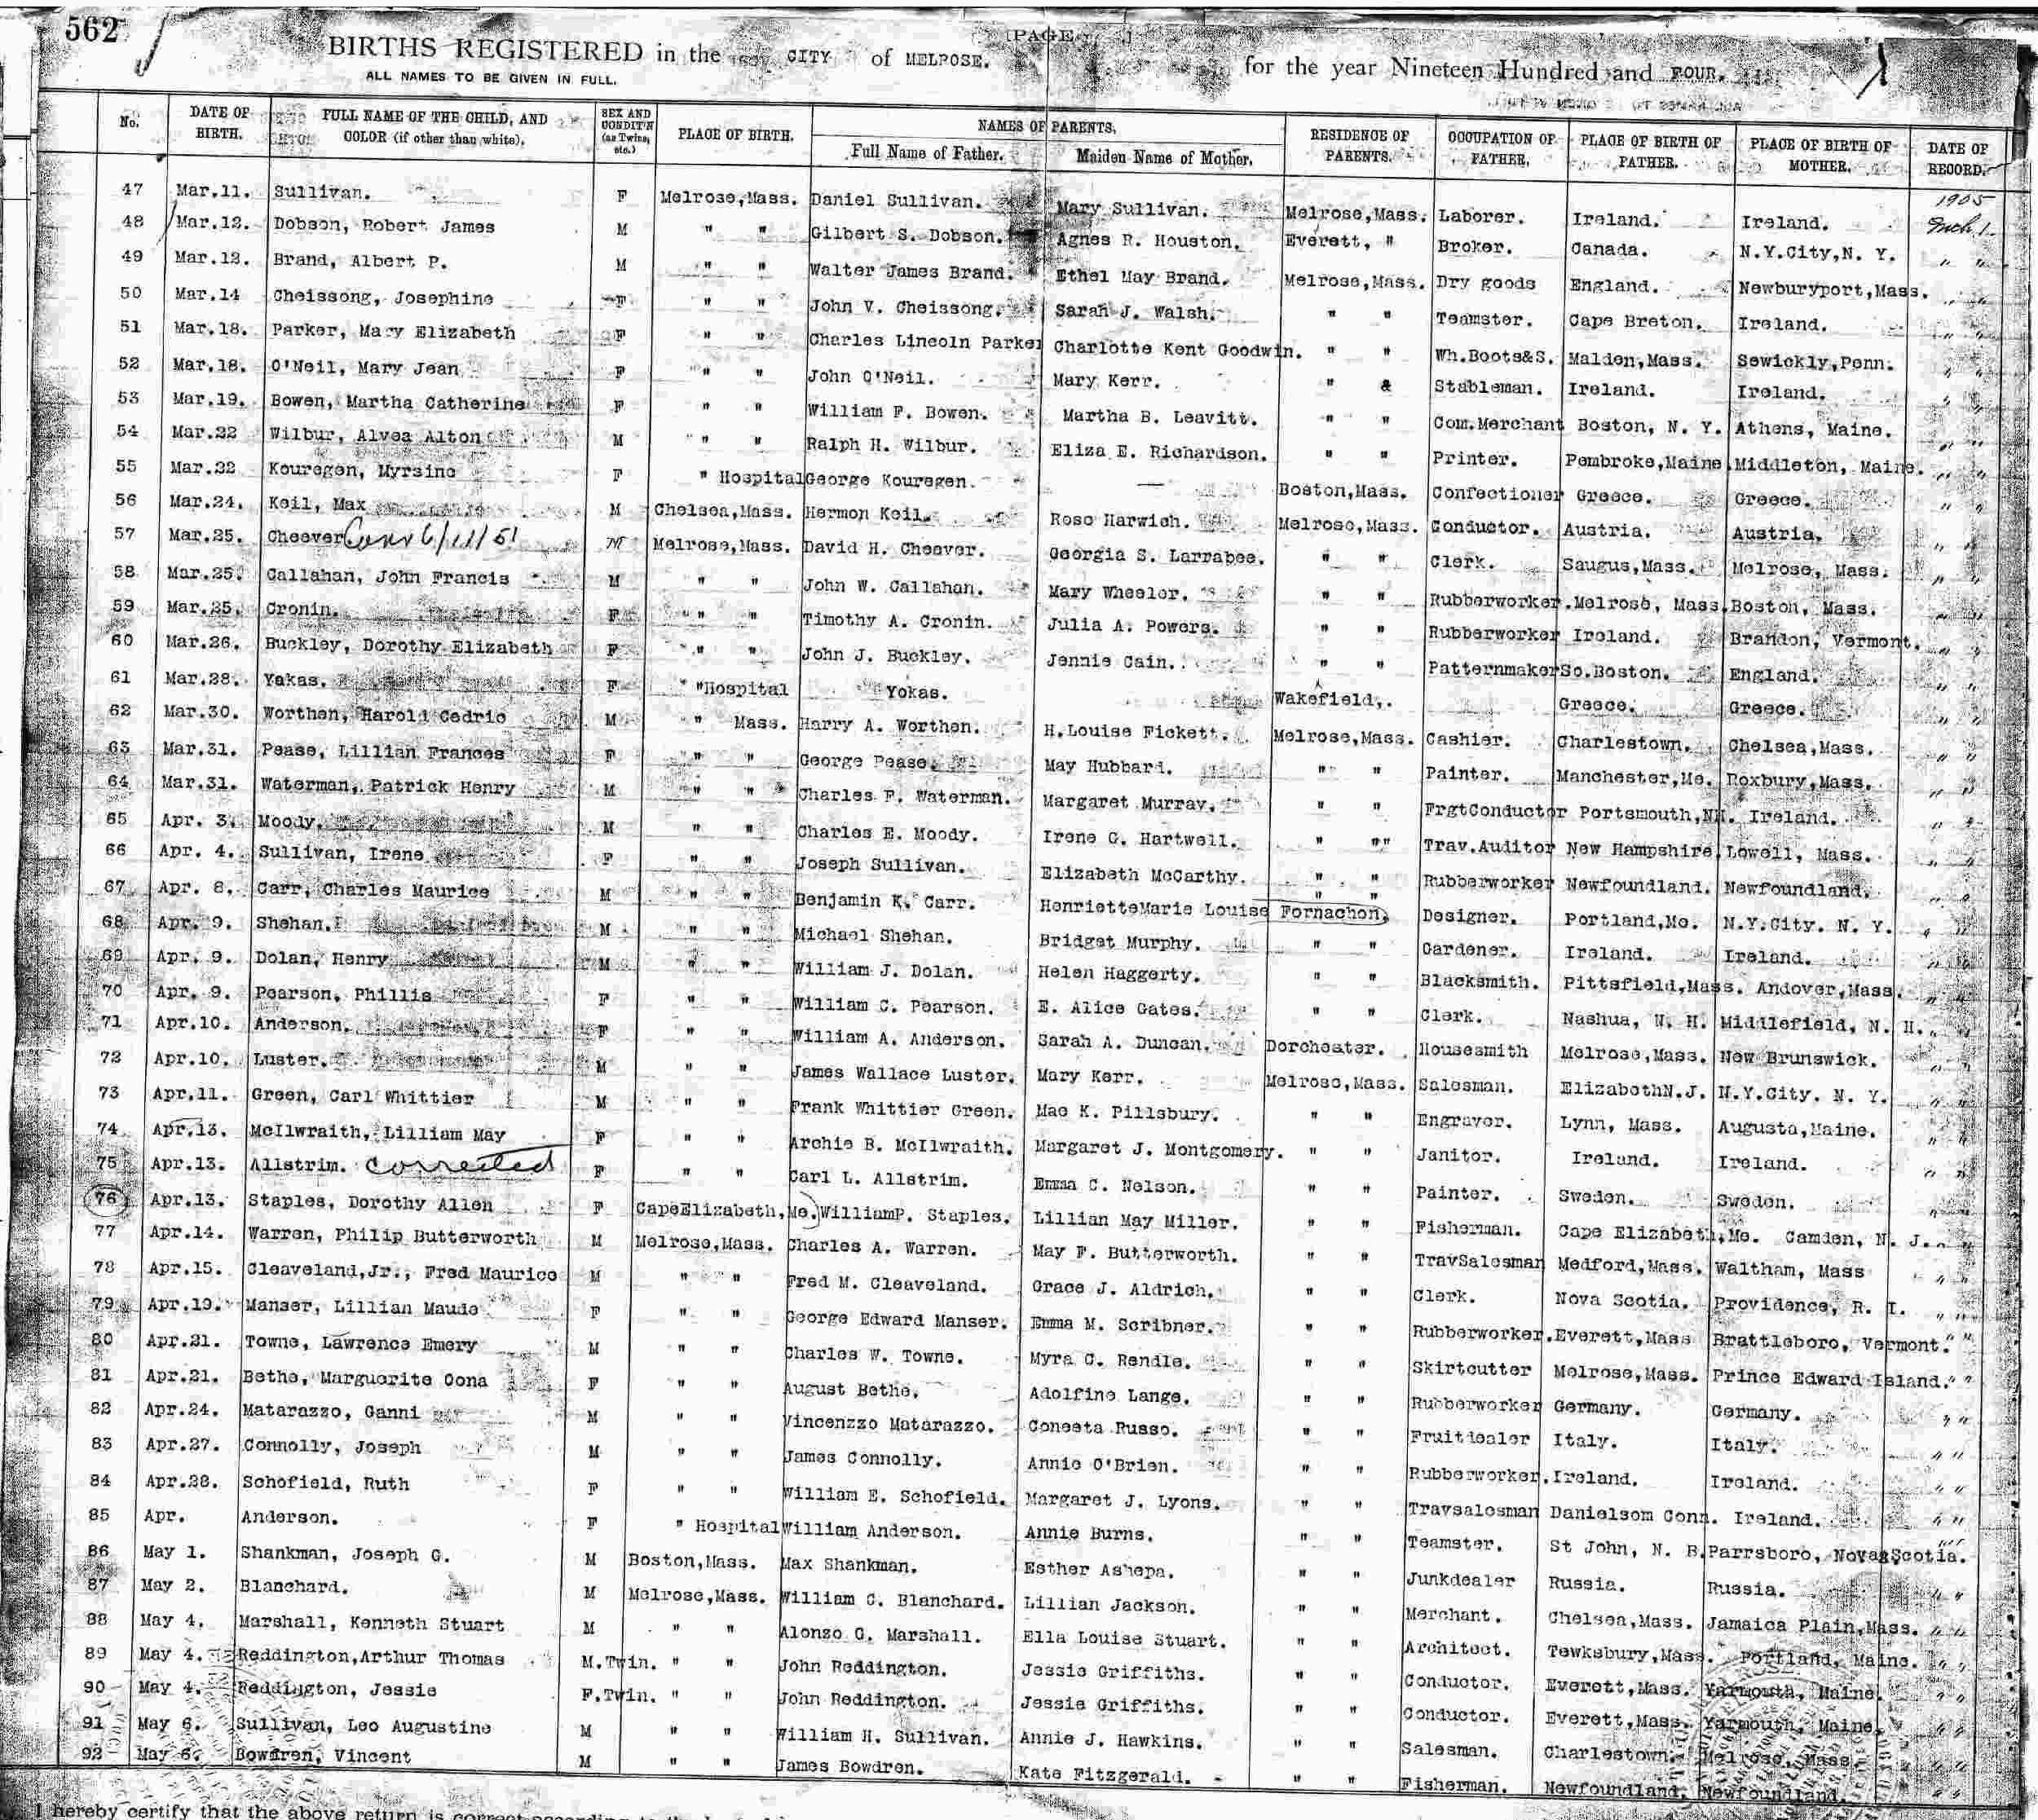 562
PAGE
BIRTHS REGISTERED in the CITY of MELROSE. for the year Nineteen Hundred and FOUR.
ALL NAMES TO BE GIVEN IN FULL.
No. DATE OF BIRTH. FULL NAME OF THE CHILD, AND COLOR (if other than white). SEX AND CONDIT'N (as Twins, etc.) PLACE OF BIRTH. NAMES OF PARENTS. Full Name of Father. Maiden Name of Mother. RESIDENCE OF PARENTS. OCCUPATION OF FATHER. PLACE OF BIRTH OF FATHER. PLACE OF BIRTH OF MOTHER. DATE OF RECORD.
1905
47 Mar.11. Sullivan. F Melrose,Mass. Daniel Sullivan. Mary Sullivan. Melrose,Mass. Laborer. Ireland. Ireland.
48 Mar.12. Dobson, Robert James M " " Gilbert S. Dobson. Agnes R. Houston. Everett, " Broker. Canada. N.Y.City,N. Y. " "
49 Mar.12. Brand, Albert P. M " " Walter James Brand. Ethel May Brand. Melrose,Mass. Dry goods England. Newburyport,Mass. " "
50 Mar.14 Cheissong, Josephine F " " John V. Cheissong. Sarah J. Walsh. " " Teamster. Cape Breton. Ireland. " "
51 Mar.18. Parker, Mary Elizabeth F " " Charles Lincoln Parker Charlotte Kent Goodwin. " " Wh.Boots&S. Malden,Mass. Sewickly,Penn. " "
52 Mar.18. O'Neil, Mary Jean F " " John O'Neil. Mary Kerr. " & Stableman. Ireland. Ireland. " "
53 Mar.19. Bowen, Martha Catherine F " " William F. Bowen. Martha B. Leavitt. " " Com.Merchant Boston, N. Y. Athens, Maine. " "
54 Mar.22 Wilbur, Alvea Alton M " " Ralph H. Wilbur. Eliza E. Richardson. " " Printer. Pembroke,Maine. Middleton, Maine. " "
55 Mar.22 Kouregen, Myrsine F " Hospital George Kouregen. — Boston,Mass. Confectioner Greece. Greece. " "
56 Mar.24. Keil, Max M Chelsea,Mass. Hermon Keil. Rose Harwich. Melrose,Mass. Conductor. Austria. Austria. " "
57 Mar.25. Cheever M Melrose,Mass. David H. Cheever. Georgia S. Larrabee. " " Clerk. Saugus,Mass. Melrose, Mass. " "
58 Mar.25. Callahan, John Francis M " " John W. Callahan. Mary Wheeler. " " Rubberworker. Melrose, Mass. Boston, Mass. " "
59 Mar.25. Cronin. F " " Timothy A. Cronin. Julia A. Powers. " " Rubberworker Ireland. Brandon, Vermont. " "
60 Mar.26. Buckley, Dorothy Elizabeth F " " John J. Buckley. Jennie Cain. " " Patternmaker So.Boston. England. " "
61 Mar.28. Yakas. F " "Hospital Yokas. Wakefield,. Greece. Greece. " "
62 Mar.30. Worthen, Harold Cedric M " Mass. Harry A. Worthen. H.Louise Fickett. Melrose,Mass. Cashier. Charlestown. Chelsea,Mass. " "
63 Mar.31. Pease, Lillian Frances F " " George Pease. May Hubbard. " " Painter. Manchester,Me. Roxbury,Mass. " "
64 Mar.31. Waterman, Patrick Henry M " " Charles F. Waterman. Margaret Murray. " " FrgtConductor Portsmouth,NH. Ireland. " "
65 Apr. 3. Moody. M " " Charles E. Moody. Irene G. Hartwell. " "" Trav.Auditor New Hampshire. Lowell, Mass. " "
66 Apr. 4. Sullivan, Irene F " " Joseph Sullivan. Elizabeth McCarthy. " " Rubberworker Newfoundland. Newfoundland. " "
67 Apr. 8. Carr, Charles Maurice M " " Benjamin K. Carr. HenrietteMarie Louise Fornachon, " " Designer. Portland,Me. N.Y.City. N. Y. " "
68 Apr. 9. Shehan. M " " Michael Shehan. Bridget Murphy. " " Gardener. Ireland. Ireland. " "
69 Apr. 9. Dolan, Henry M " " William J. Dolan. Helen Haggerty. " " Blacksmith. Pittsfield,Mass. Andover,Mass. " "
70 Apr. 9. Pearson, Phillis F " " William C. Pearson. E. Alice Gates. " " Clerk. Nashua, N. H. Middlefield, N. H. " "
71 Apr.10. Anderson. F " " William A. Anderson. Sarah A. Duncan. Dorchester. Housesmith Melrose,Mass. New Brunswick. " "
72 Apr.10. Luster. M " " James Wallace Luster. Mary Kerr. Melrose,Mass. Salesman. ElizabethN.J. N.Y.City. N. Y. " "
73 Apr.11. Green, Carl Whittier M " " Frank Whittier Green. Mae K. Pillsbury. " " Engraver. Lynn, Mass. Augusta,Maine. " "
74 Apr.13. McIlwraith, Lilliam May F " " Archie B. McIlwraith. Margaret J. Montgomery. " " Janitor. Ireland. Ireland. " "
75 Apr.13. Allstrim. Corrected F " " Carl L. Allstrim. Emma C. Nelson. " " Painter. Sweden. Sweden. " "
76 Apr.13. Staples, Dorothy Allen F CapeElizabeth,Me. WilliamP. Staples. Lillian May Miller. " " Fisherman. Cape Elizabeth,Me. Camden, N. J. " "
77 Apr.14. Warren, Philip Butterworth M Melrose,Mass. Charles A. Warren. May F. Butterworth. " " TravSalesman Medford,Mass. Waltham, Mass " "
78 Apr.15. Cleaveland,Jr., Fred Maurice M " " Fred M. Cleaveland. Grace J. Aldrich. " " Clerk. Nova Scotia. Providence, R. I. " "
79 Apr.19. Manser, Lillian Maude F " " George Edward Manser. Emma M. Scribner. " " Rubberworker. Everett,Mass Brattleboro, Vermont. " "
80 Apr.21. Towne, Lawrence Emery M " " Charles W. Towne. Myra C. Rendle. " " Skirtcutter Melrose,Mass. Prince Edward Island. " "
81 Apr.21. Bethe, Marguerite Oona F " " August Bethe. Adolfine Lange. " " Rubberworker Germany. Germany. " "
82 Apr.24. Matarazzo, Ganni M " " Vincenzzo Matarazzo. Coneeta Russo. " " Fruitdealer Italy. Italy. " "
83 Apr.27. Connolly, Joseph M " " James Connolly. Annie O'Brien. " " Rubberworker. Ireland. Ireland. " "
84 Apr.28. Schofield, Ruth F " " William E. Schofield. Margaret J. Lyons. " " Travsalesman Danielsom Conn. Ireland. " "
85 Apr. Anderson. F " Hospital William Anderson. Annie Burns. " " Teamster. St John, N. B. Parrsboro, Nova Scotia. " "
86 May 1. Shankman, Joseph G. M Boston,Mass. Max Shankman. Esther Ashepa. " " Junkdealer Russia. Russia. " "
87 May 2. Blanchard. M Melrose,Mass. William C. Blanchard. Lillian Jackson. " " Merchant. Chelsea,Mass. Jamaica Plain,Mass. " "
88 May 4. Marshall, Kenneth Stuart M " " Alonzo G. Marshall. Ella Louise Stuart. " " Architect. Tewksbury,Mass. Portland, Maine. " "
89 May 4. Reddington,Arthur Thomas M.Twin. " " John Reddington. Jessie Griffiths. " " Conductor. Everett,Mass. Yarmouth, Maine. " "
90 May 4. Reddington, Jessie F.Twin. " " John Reddington. Jessie Griffiths. " " Conductor. Everett,Mass. Yarmouth, Maine. " "
91 May 6. Sullivan, Leo Augustine M " " William H. Sullivan. Annie J. Hawkins. " " Salesman. Charlestown. Melrose, Mass. " "
92 May 6. Bowdren, Vincent M " " James Bowdren. Kate Fitzgerald. " " Fisherman. Newfoundland. Newfoundland. " "
I hereby certify that the above return is correct according to the